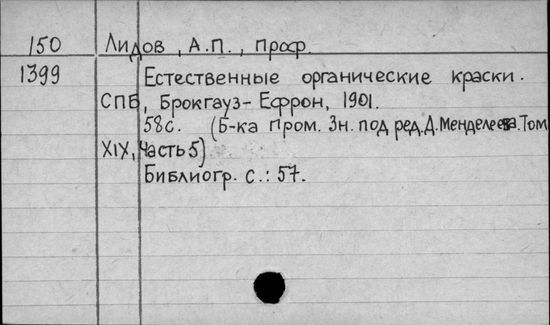 150 Лидов, А.П., проф.
1399 Естественные органические краски.
СПБ, Брокгауз-Ефрон, 1901.
58с. (Б-ка пром. Зн. под ред. Д. Менделеева. Том
XIX, Часть 5)
Библиогр. с.: 57.